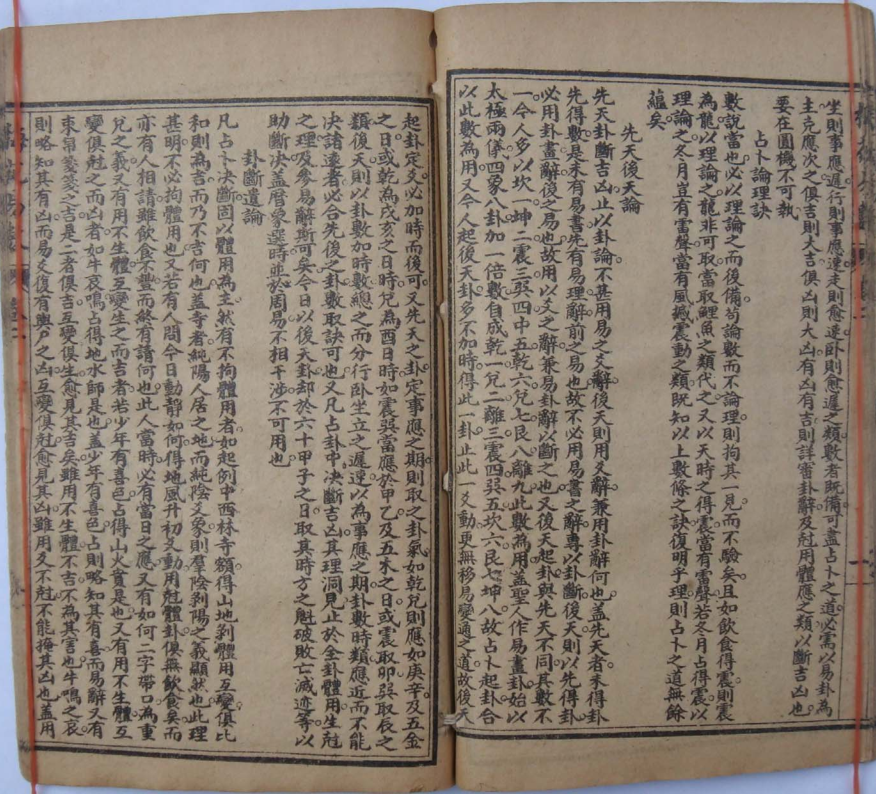 坐則事應遲行則事應速走則愈速臥則愈遲之類數者既備可盡占卜之道必需以易卦為
主克應次之俱吉則大吉俱凶則大凶有凶有吉則詳審卦辭及尅用體應之類以斷吉凶也
要在圓機不可執
占卜論理訣
數說當也必以理論之而後備苟論數而不論理則拘其一見而不驗矣且如飲食得震則震
為龍以理論之龍非可取當取鯉魚之類代之又以天時之得震當有雷聲若冬月占得震以
理論之冬月豈有雷聲當有風撼震動之類既知以上數條之訣復明乎理則占卜之道無餘
蘊矣
先天後天論
先天卦斷吉凶止以卦論不甚用易之爻辭後天則用爻辭兼用卦辭何也蓋先天者未得卦
先得數是未有易書先有易理辭前之易也故不必用易書之辭專以卦斷後天則以先得卦
必用卦畫辭後之易也故用以爻之辭兼易卦辭以斷之也又後天起卦與先天不同其數不
一今人多以坎一坤二震三巽四中五乾六兌七艮八離九此數為用蓋聖人作易畫卦始以
太極兩儀四象八卦加一倍數自成乾一兌二離三震四巽五坎六艮七坤八故占卜起卦合
以此數為用又今人起後天卦多不加時得此一卦止此一爻動更無移易變通之道故後天
起卦定爻必加時而後可又先天之卦定事應之期則取之卦氣如乾兌則應如庚辛及五金
之日或乾為戌亥之日時兌為酉日時如震巽當應於甲乙及五木之日或震取卯巽取辰之
類後天則以卦數加時數總之而分行臥坐立之遲速以為事應之期卦數時類應近而不能
决諸遠者必合先後之卦數取訣可也又凡占卦中决斷吉凶其理洞見止於全卦體用生尅
之理及參易辭斯可矣今日以後天卦却於六十甲子之日取其時方之魁破敗亡滅迹等以
助斷决蓋曆象選時並於周易不相干涉不可用也
卦斷遺論
凡占卜决斷固以體用為主然有不拘體用者如起例中西林寺額得山地剝體用互變俱比
和則為吉而乃不吉何也蓋寺者純陽人居之地而純陰爻象則羣陰剝陽之義顯然也此理
甚明不必拘體用也又若有人問今日動靜如何得地風升初爻動用尅體卦俱無飲食矣而
亦有人相請雖飲食不豐而終有請何也此人當時必有當日之應又有如何二字帶口為重
兌之義又有用不生體互變生之而吉者若少年有喜色占得山火賁是也又有用不生體互
變俱尅之而凶者如牛哀鳴占得地水師是也蓋少年有喜色占則略知其有喜而易辭又有
束帛箋箋之吉是二者俱吉互變俱生愈見其吉矣雖用不生體不吉不為其害也牛鳴之哀
則略知其有凶而易爻復有輿尸之凶互變俱尅愈見其凶雖用爻不尅不能掩其凶也蓋用